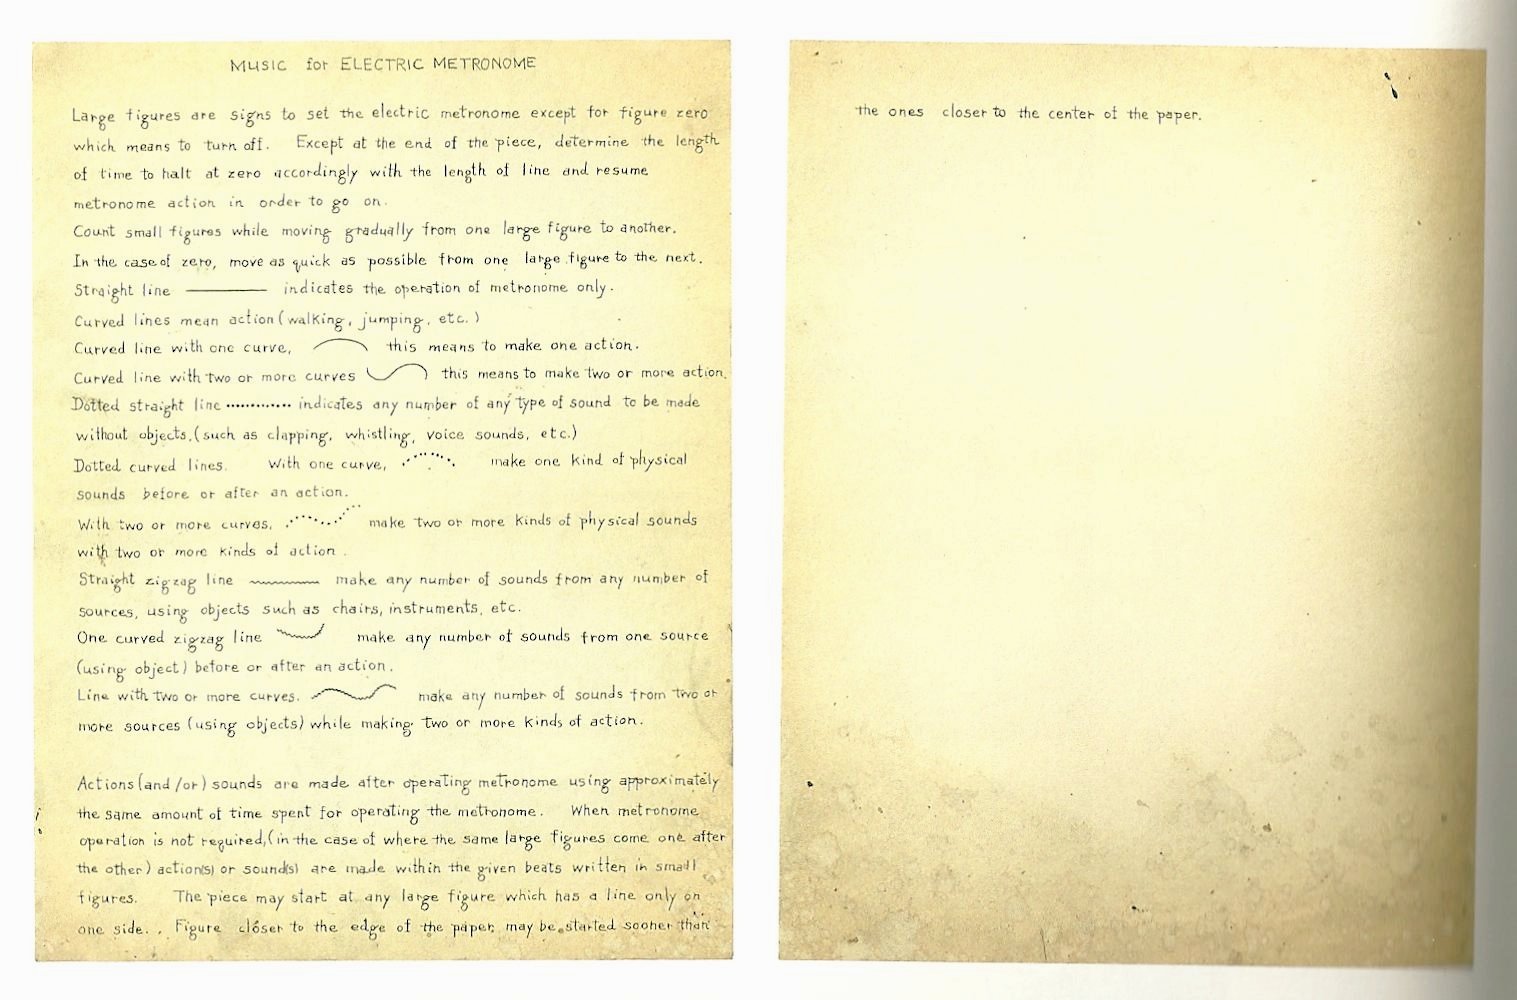 MUSIC for ELECTRIC METRONOME
Large figures are signs to set the electric metronome except for figure zero
which means to turn off. Except at the end of the piece, determine the length
of time to halt at zero accordingly with the length of line and resume
metronome action in order to go on.
Count small figures while moving gradually from one large figure to another.
In the case of zero, move as quick as possible from one large figure to the next.
Straight line indicates the operation of metronome only.
Curved lines mean action (walking, jumping, etc.)
Curved line with one curve, this means to make one action.
Curved line with two or more curves this means to make two or more action.
Dotted straight line indicates any number of any type of sound to be made
without objects. (such as clapping, whistling, voice sounds, etc.)
Dotted curved lines. With one curve, make one kind of physical
sounds before or after an action.
With two or more curves, make two or more kinds of physical sounds
with two or more kinds of action.
Straight zigzag line make any number of sounds from any number of
sources, using objects such as chairs, instruments, etc.
One curved zigzag line make any number of sounds from one source
(using object) before or after an action.
Line with two or more curves. make any number of sounds from two or
more sources (using objects) while making two or more kinds of action.
Actions (and/or) sounds are made after operating metronome using approximately
the same amount of time spent for operating the metronome. When metronome
operation is not required, (in the case of where the same large figures come one after
the other) action(s) or sound(s) are made within the given beats written in small
figures. The piece may start at any large figure which has a line only on
one side. . Figure closer to the edge of the paper, may be started sooner than
the ones closer to the center of the paper.